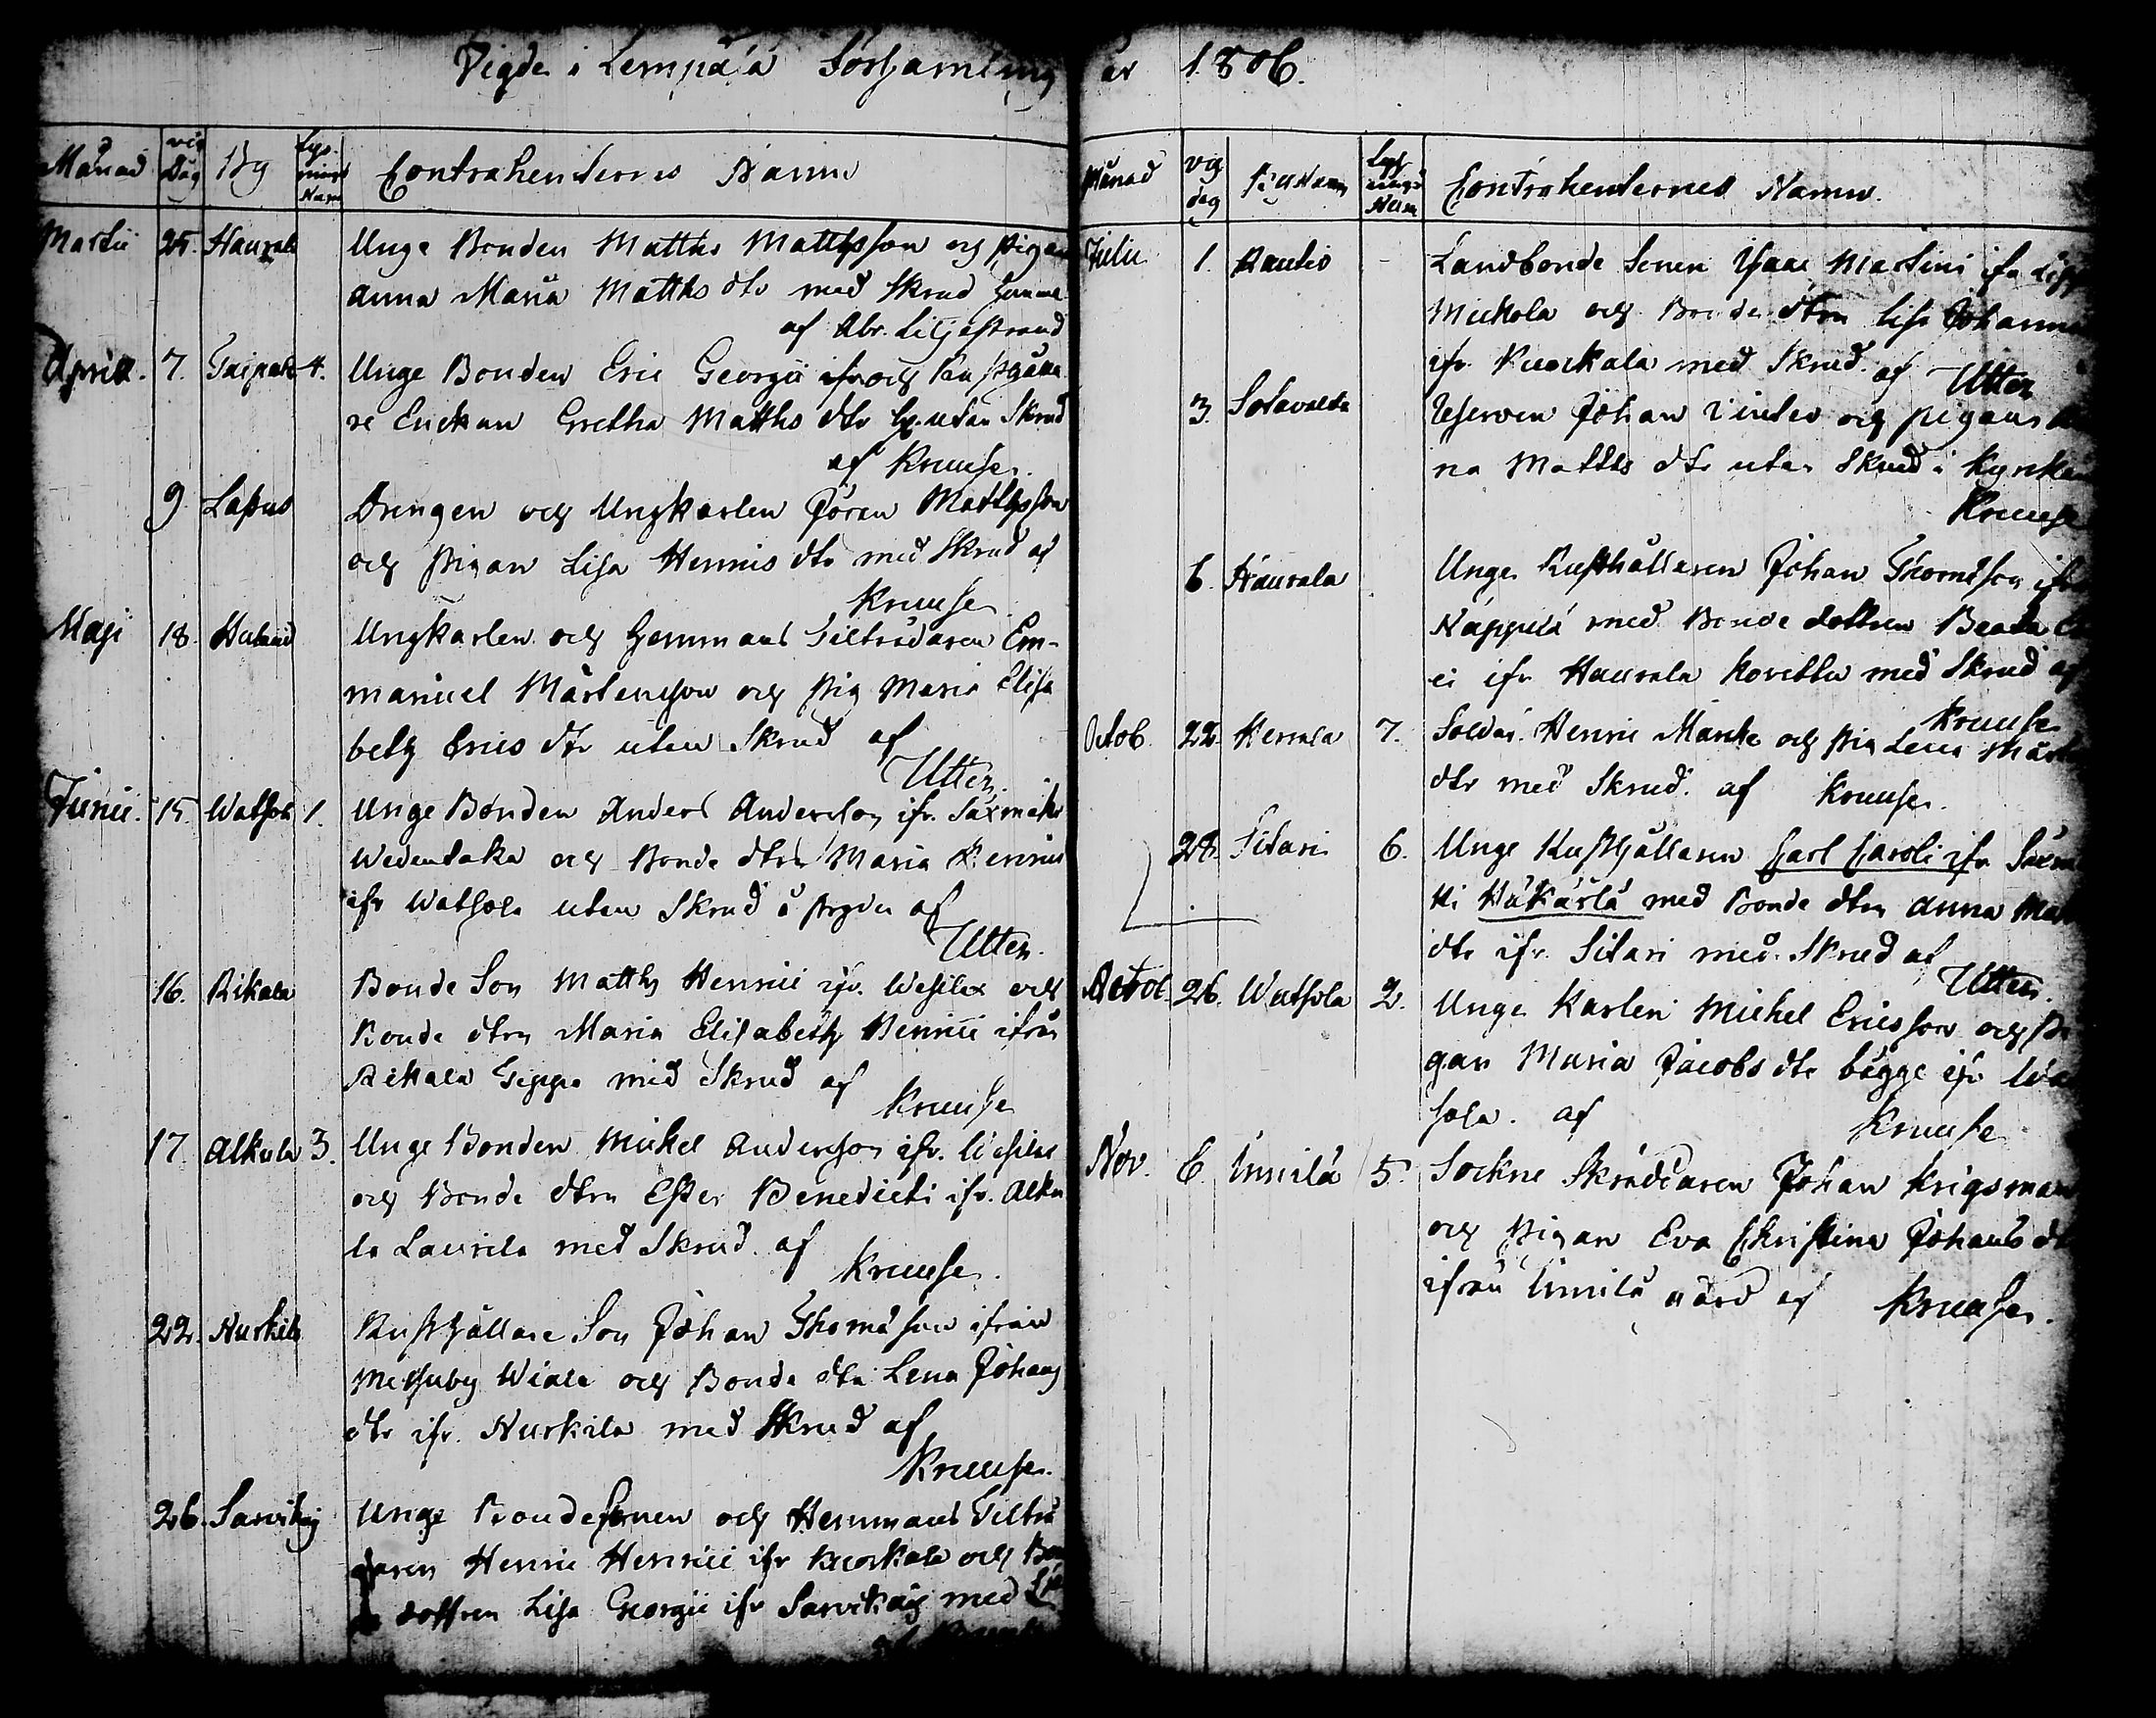 Vigde i Lempäälä Församling år 1806.
Månad vig Dag By Lysnings Num Contrahenternes Namn
Martii 25. Haurala Unge Bonden Matths Mattsson og pigan
anna Maria Matths dtr med Skrud hemma
af Abr. Liljestrand
April. 7. Taipale 4. Unge Bonden Eric Georgii ifr och
re Enckan Gretha Matths dtr utan Skrud
af Kruuse.
9 Lapus Drengen och Ungkarlen Jöran Mattsson
och pigan Lisa Henrics dtr med Skrud af
Kruuse
Maji 18. Ungkarlen och Hemmans Tilträdaren Em-
manuel Mårtensson och pig Maria Elisa
beth Erics dtr utan Skrud af
Utter.
Junii. 15. Watsola 1. Unge Bonden Anders Andersson ifr. Säxmäki
Wedentaka och Bonde dtrn Maria Henrici
ifr Watsola utan Skrud å byn af
Utter.
16. Rikala Bonde Son Matths Henrici ifr. Wesilax och
Bonde dtrn Maria Elisabeth Henrici ifrån
Rikala Seppä med Skrud af
Kruuse
17. Alkula 3. Unge Bonden Michel Andersson ifr. Wesilax
och Bonde dtrn Ester Benedicti ifr. Alku
la Laurila med Skrud. af
Kruuse.
22. Nurkila Rusthållare Son Johan Thomasson ifrån
Messuby Wiala och Bonde dtr Lena Johans
dtr ifr. Nurkila med Skrud af
Kruuse.
26. Sarvikas Unge Bondesonen och Hemmans Tilträ
daren Henric Henrici ifr Kuokala och Bon
de dottren Lisa Georgii ifr Sarvikas med
Månad vig dag By Namn Lysnings Num Contrahenternes Namn.
Julii 1. Rautio - Landbonde Sonen Isaac Martini ifr
Mickola och Bonde dtrn Lisa Johannis
ifr. Kuokala med Skrud. af Utter
3. Sotavalda Johan Winter och pigan
na Matths dtr utan Skrud i Kyrkan
Kruuse
6. Haurala Unge Rusthållaren Johan Thomasson ifr
Näppilä med Bonde dottren Beata
ei ifr Haurala Kovettu med Skrud af
Kruuse
Octob. 22. Herrala 7. Soldat. Henric Marck och pig Lena Mårt
dtr med Skrud. af Kruuse.
28. Sitari 6. Unge Rusthållaren Carl Caroli ifr Säxmä
ki Häkärlä med Bonde dtrn Anna Mat
dtr ifr. Sitari med Skrud af
Utter.
Octob. 26. Watsola 2. Unge Karlen Michel Ericsson och pi
gan Maria Jacobs dtr bägge ifr Wat
sola. af Kruuse
Nov. 6. Innilä 5. Sockne Skräddaren Johan Krigsman
och pigan Eva Christina Johans dtr
ifrån Innilä af Kruuse.